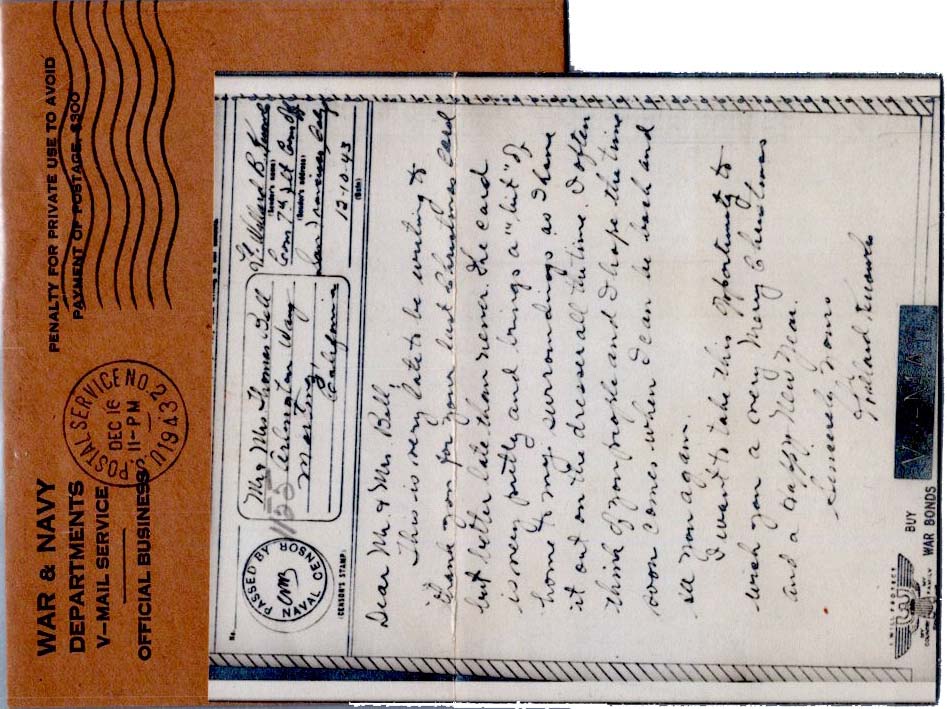 WAR & NAVY
DEPARTMENTS
V—MAIL SERVICE
OFFICIAL BUSINESS
PENALTY FOR PRIVATE USE TO AVOID
PAYMENT OF POSTAGE, $300
U. S. POSTAL SERVICE NO. 2
DEC 16
11-PM
1943
No.
PASSED BY
NAVAL CENSOR
(CENSOR'S STAMP)
Mr & Mrs Thomas Bell
1255
California
Lt. Willard B.
(Sender's name)
(Sender's address)
San Francisco, Calif
12-10-43
(Date)
Dear Mr. & Mrs. Bell,
This is very late to be writing to
thank you for your last Christmas card
but better late than never. The card
is very pretty and brings a "bit" of
home to my surroundings as I have
it out on the dresser all the time. I often
think of you people and I hope the time
soon comes when I can be back and
see you again.
I want to take this opportunity to
wish you a very Merry Christmas
and a Happy New Year.
Sincerely yours
Willard
V···—MAIL
I WILL PROTECT
MY COUNTRY
MY FAMILY
BUY
WAR BONDS